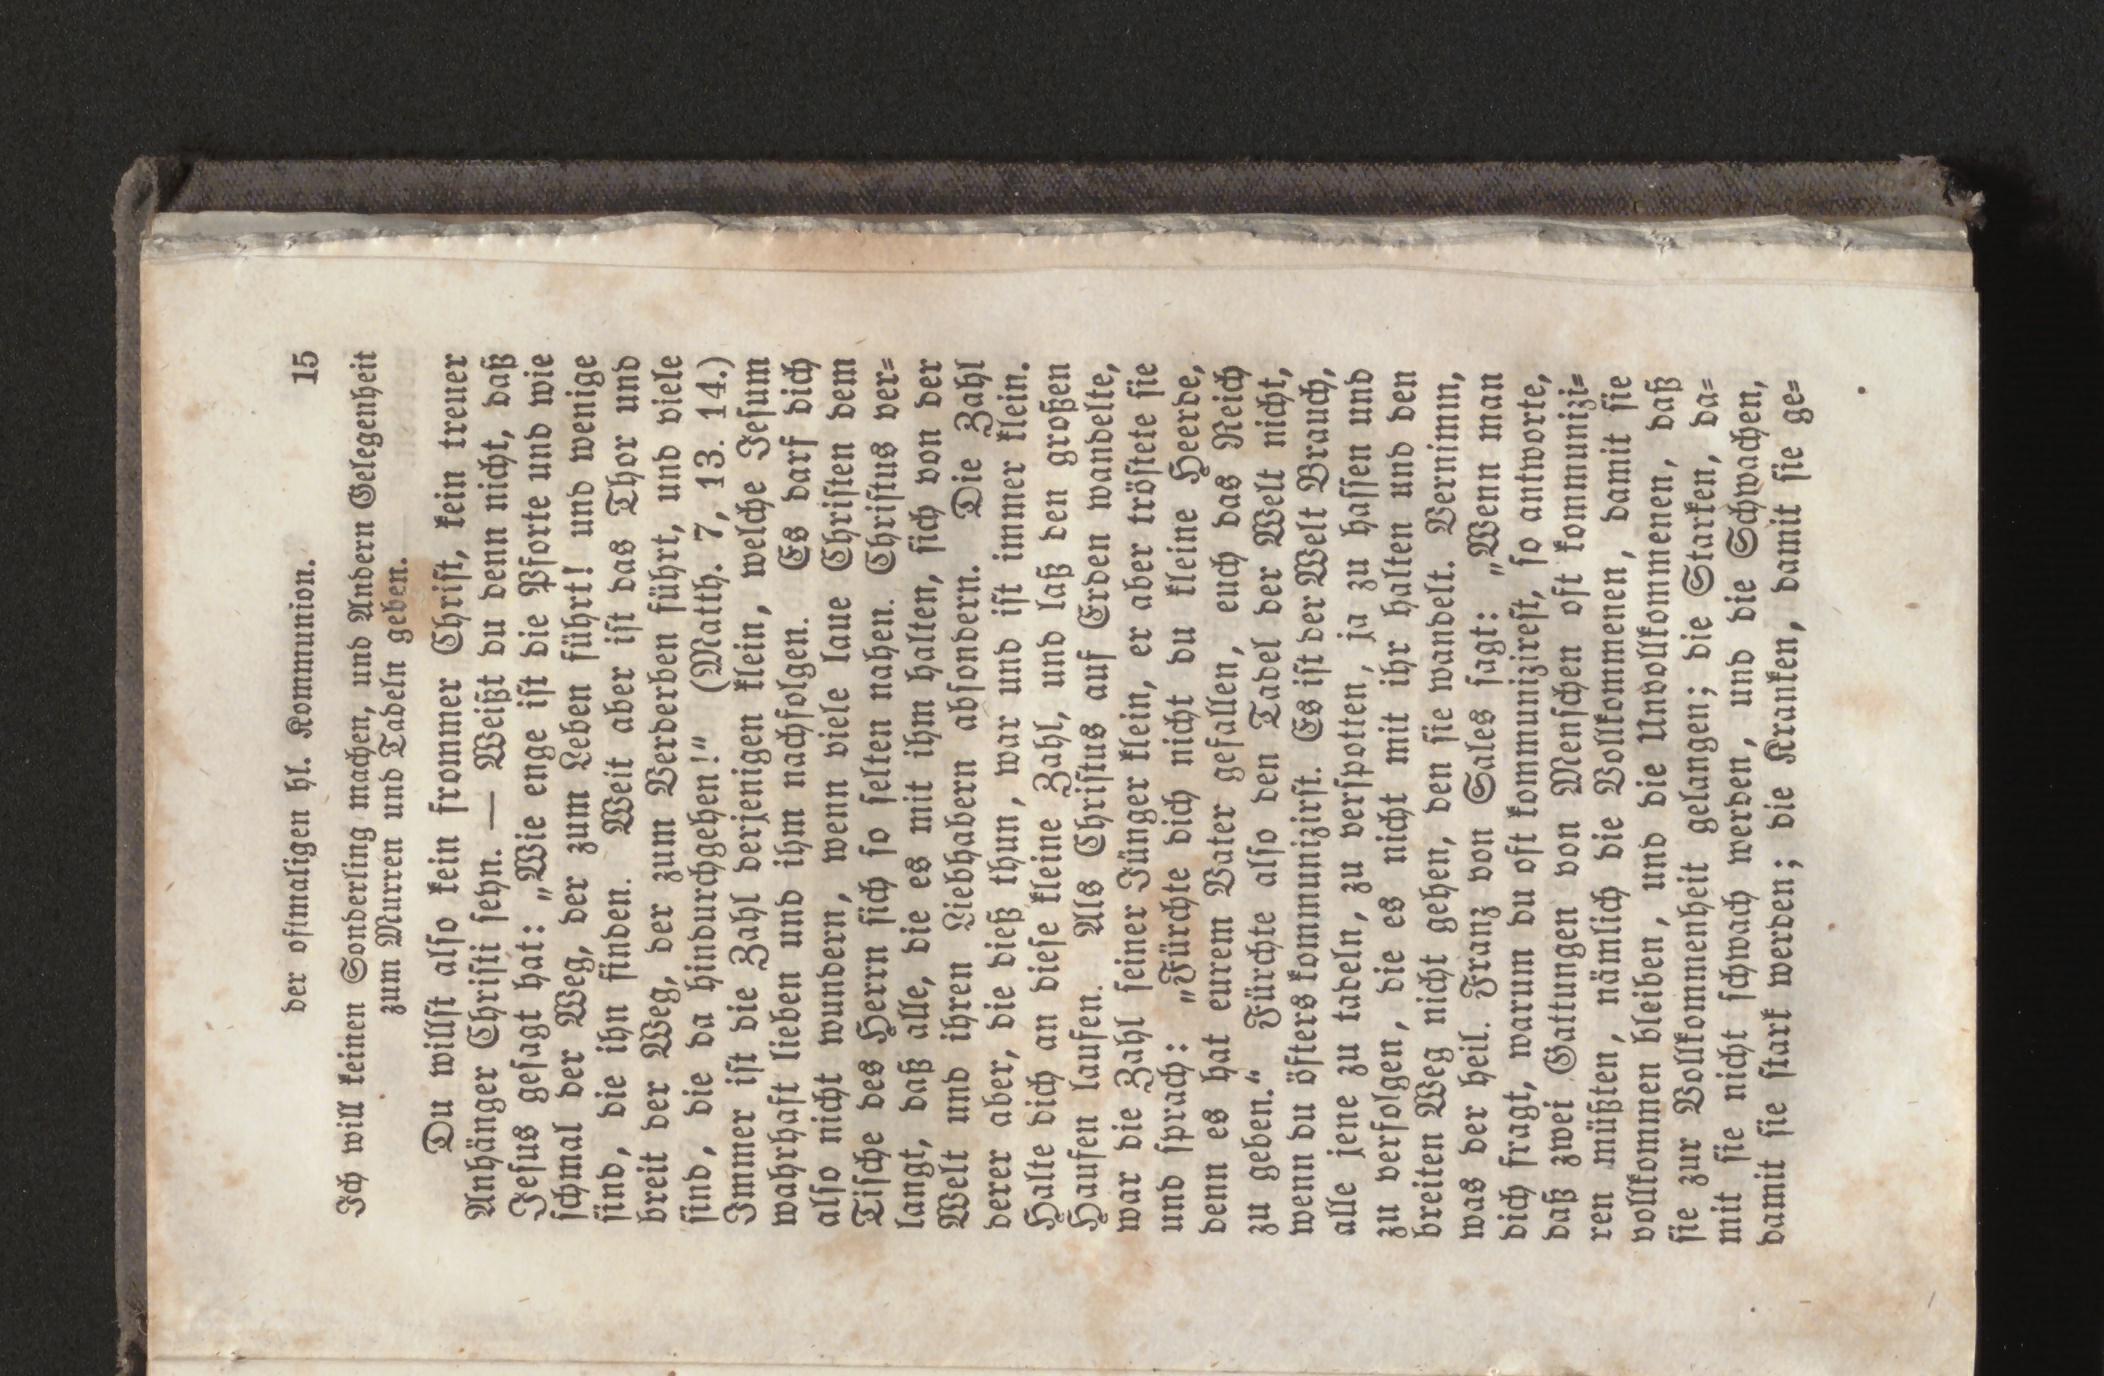 der oftmaligen hl. Kommunion. 15
Ich will keinen Sonderling machen, und Andern Gelegenheit
zum Murren und Tadeln geben.
Du willst also kein frommer Christ, kein treuer
Anhänger Christi seyn. — Weißt du denn nicht, daß
Jesus gesagt hat: „Wie enge ist die Pforte und wie
schmal der Weg, der zum Leben führt! und wenige
sind, die ihn finden. Weit aber ist das Thor und
breit der Weg, der zum Verderben führt, und viele
sind, die da hindurchgehen!“ (Matth. 7, 13. 14.)
Immer ist die Zahl derjenigen klein, welche Jesum
wahrhaft lieben und ihm nachfolgen. Es darf dich
also nicht wundern, wenn viele laue Christen dem
Tische des Herrn sich so selten nahen. Christus ver-
langt, daß alle, die es mit ihm halten, sich von der
Welt und ihren Liebhabern absondern. Die Zahl
derer aber, die dieß thun, war und ist immer klein.
Halte dich an diese kleine Zahl, und laß den großen
Haufen laufen. Als Christus auf Erden wandelte,
war die Zahl seiner Jünger klein, er aber tröstete sie
und sprach: „Fürchte dich nicht du kleine Heerde,
denn es hat eurem Vater gefallen, euch das Reich
zu geben.“ Fürchte also den Tadel der Welt nicht,
wenn du öfters kommunizirst. Es ist der Welt Brauch,
alle jene zu tadeln, zu verspotten, ja zu hassen und
zu verfolgen, die es nicht mit ihr halten und den
breiten Weg nicht gehen, den sie wandelt. Vernimm,
was der heil. Franz von Sales sagt: „Wenn man
dich fragt, warum du oft kommunizirest, so antworte,
daß zwei Gattungen von Menschen oft kommunizi-
ren müßten, nämlich die Vollkommenen, damit sie
vollkommen bleiben, und die Unvollkommenen, daß
sie zur Vollkommenheit gelangen; die Starken, da-
mit sie nicht schwach werden, und die Schwachen,
damit sie stark werden; die Kranken, damit sie ge-